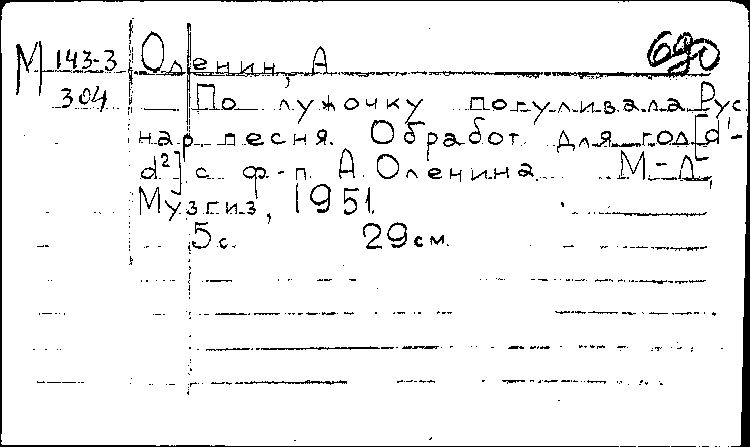 М 143-3 Оленин, А
304 По лужочку погуливала Рус
нар песня. Обработ для гол [d¹-
d²] с ф-п А Оленина М-Л,
Музгиз, 1951
5с. 29см.